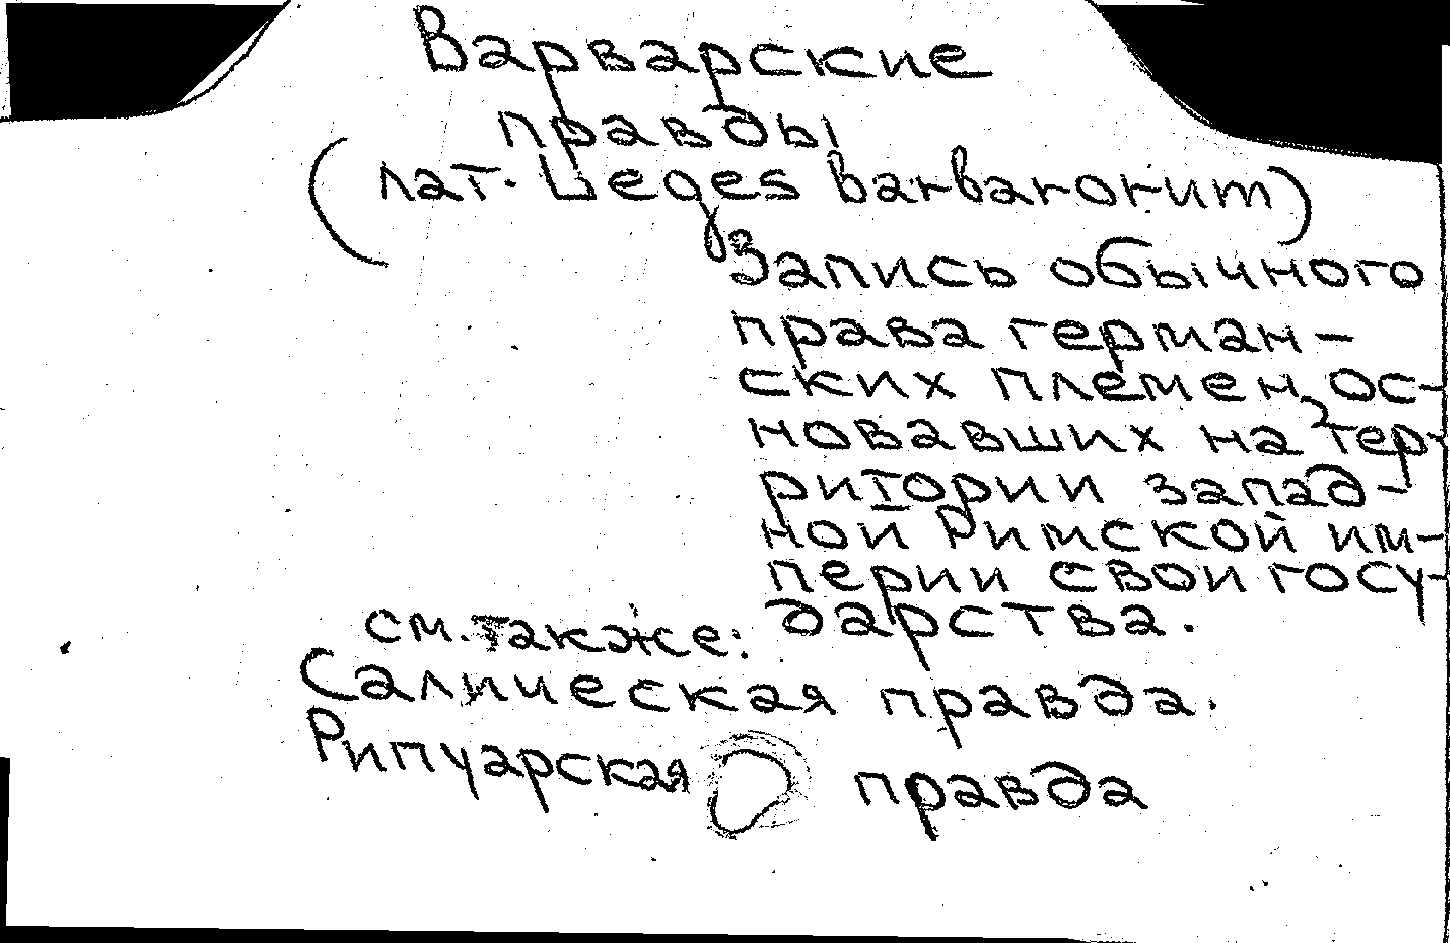 Варварские
правды
(лат. Leges barbarorum)
Запись обычного
права герман-
ских племен, ос-
новавших на тер-
ритории запад-
ной Римской им-
перии свои госу-
дарства.
см. также:
Салическая правда.
Рипуарская правда